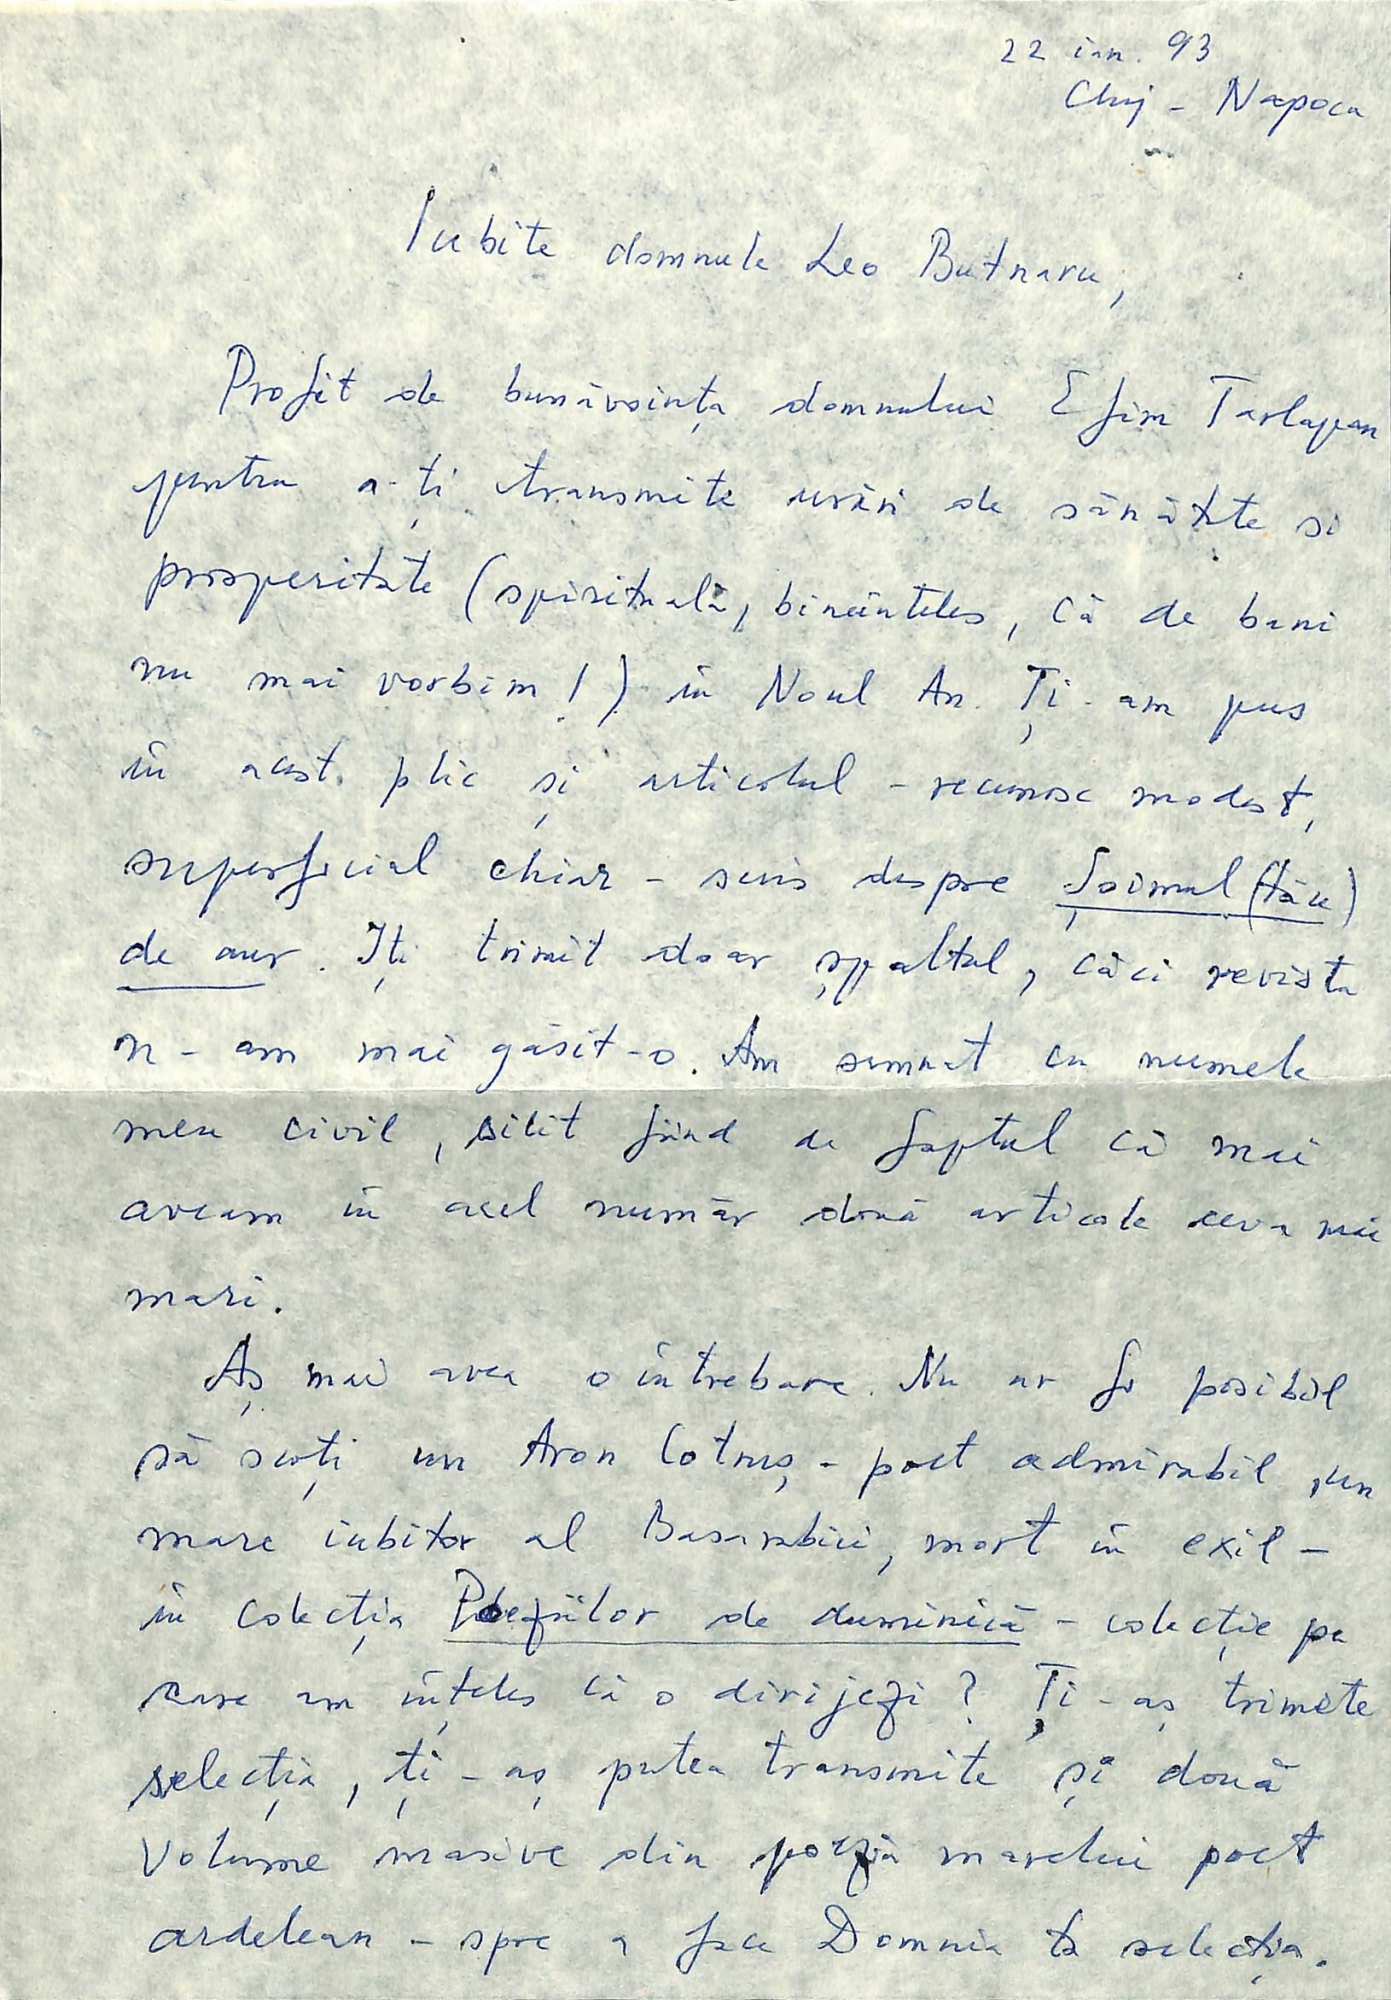 22 ian. 93
Cluj - Napoca
Iubite domnule Leo Butnaru,
Profit de bunăvoința domnului Efim Tarlapan
pentru a-ți transmite urări de sănătate si
prosperitate (spirituală, bineînțeles, că de bani
nu mai vorbim!) în Noul An. Ți-am pus
în acest plic și articolul - recunosc modest,
superficial chiar - scris despre Șoimul (tău)
de aur. Iți trimit doar șpaltul, căci revista
n-am mai găsit-o. Am semnat cu numele
meu civil, silit fiind de faptul că mai
aveam în acel număr două articole ceva mai
mari.
Aș mai avea o întrebare. Nu ar fi posibil
să scoți un Aron Cotruș - poet admirabil, un
mare iubitor al Basarabiei, mort în exil -
în colecția Poeziilor de duminică - colecție pe
care am înțeles că o dirijezi? Ți-aș trimite
selecția, ți-aș putea transmite și două
volume masive din poezia marelui poet
ardelean - spre a face Domnia ta selecția.